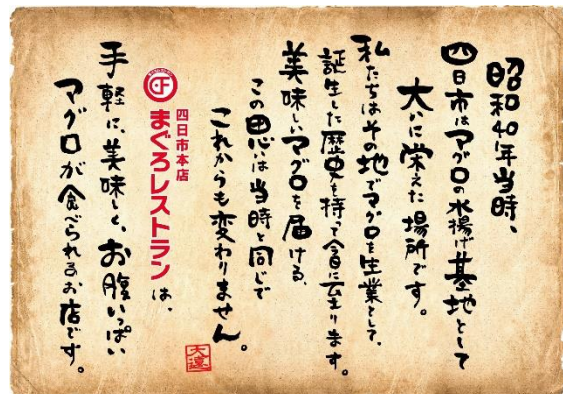 昭和40年当時、
四日市はマグロの水揚げ基地として
大いに栄えた場所です。
私たちはその地でマグロを生業として、
誕生した歴史を持って今日に至ります。
美味しいマグロを届ける、
この思いは当時と同じで
これからも変わりません。
四日市本店
まぐろレストランは、
手軽に、美味しく、お腹いっぱい
マグロが食べられるお店です。